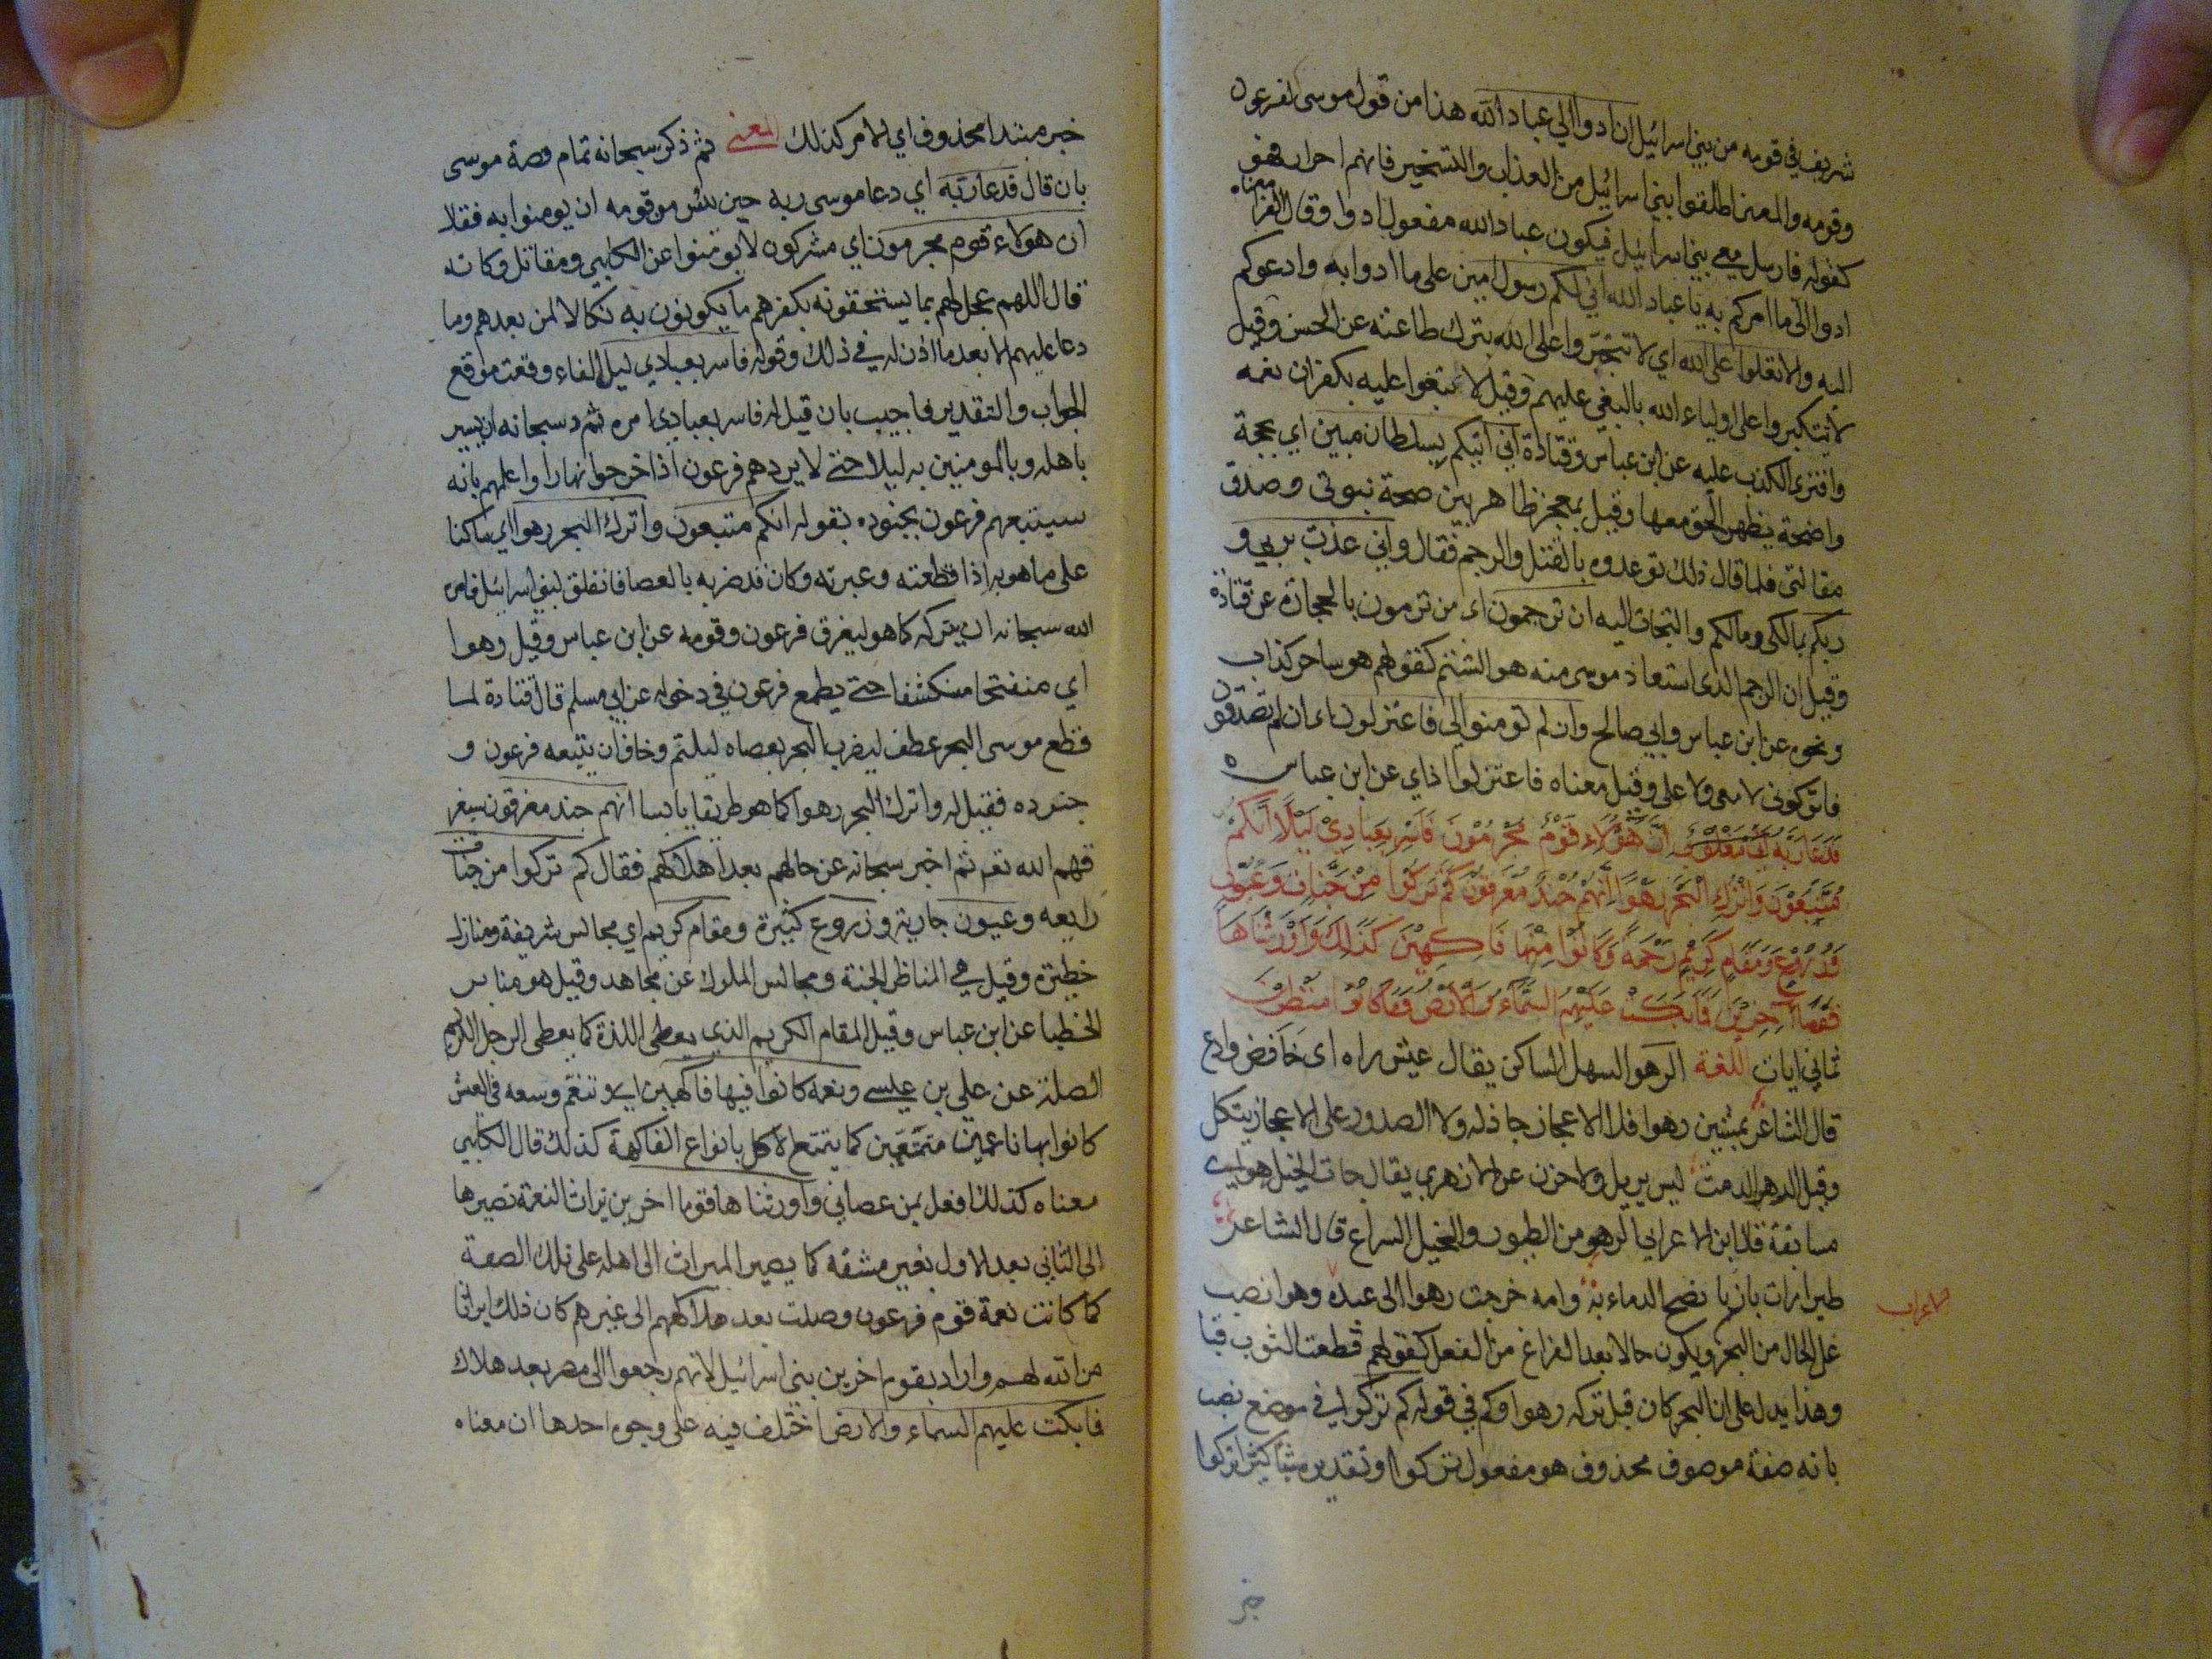 شريف في قومه من بني اسرائيل ان ادوا الي عباد الله هذا من قول موسى لفرعون
وقومه والمعنى اطلقوا بني اسرائيل من العذاب والتسخير فانهم احرار فهو
كقوله فارسل معي بني اسرائيل فيكون عباد الله مفعول ادوا وقال الفرا معناه
ادوا الى ما امركم به يا عباد الله اني لكم رسول امين على ما ادوا به وادعوكم
اليه وان لا تعلوا على الله اي لا تتجبروا على الله بترك طاعته عن الحسن وقيل
لا تتكبروا على اولياء الله بالبغي عليهم وقيل لا تبغوا عليه بكفران نعمه
وافترى الكذب عليه عن ابن عباس وقتادة اني اتيكم بسلطان مبين اي بحجة
واضحة يظهر الحق معها وقيل بمعجز ظاهر يبين صحة نبوتي وصدق
مقالتي فلما قال ذلك توعدوه بالقتل والرجم فقال واني عذت بربي و
ربكم مالكي ومالكم والتجات اليه ان ترجمون اى من ترمون بالحجارة عن قتادة
وقيل ان الرجم الذى استعاذ موسى منه هو الشتم كقولهم هو ساحر كذاب
ونحوه عن ابن عباس وابي صالح وان لم تومنوا لي فاعتزلون اى ان لم تصدقون
فاتركوني لا معي ولا علي وقيل معناه فاعتزلوا اذاي عن ابن عباس ه
فدعا ربه ان هؤلاء قوم مجرمون فاسر بعبادي ليلا انكم
متبعون واترك البحر رهوا انهم جند مغرقون كم تركوا من جنات وعيون
وزروع ومقام كريم ونعمة كانوا فيها فاكهين كذلك واورثناها
قوما اخرين فما بكت عليهم السماء والارض وما كانوا منظرين
ثماني ايات اللغة الرهو السهل الساكن يقال عيش راه اى خافض وادع
قال الشاعر يمشين رهوا فلا الاعجاز خاذلة ولا الصدور على الاعجاز يتكل
وقيل الرهو الدمث ليس برمل ولا حزن عن الازهري يقال جات الخيل رهوا اي
متابعة قال ابن الاعرابي الرهو من الطيور والخيل السراع قال الشاعر
طيرا رات بازيا نضح الدماء به وامه خرجت رهوا الى عيد رهوا نصب
الاعراب
على الحال من البحر ويكون حالا بعد الفراغ من الفعل كقولهم قطعت الثوب قبا
وهذا يدل على ان البحر كان قبل تركه رهوا وكم في قوله كم تركوا في موضع نصب
بانه صفة موصوف محذوف هو مفعول تركوا وتقديره شيئا كثيرا تركوا
خبر
خبر مبتدا محذوف اي الامر كذلك المعنى ثم ذكر سبحانه تمام قصة موسى
بان قال فدعا ربه اي دعا موسى ربه حين يئس من قومه ان يومنوا به فقال
ان هولاء قوم مجرمون اي مشركون لا يومنوا عن الكلبي ومقاتل وكانه
قال اللهم عجل لهم بما يستحقونه بكفرهم ما يكونون به نكالا لمن بعدهم وما
دعا عليهم الا بعد ما اذن له في ذلك وقوله فاسر بعبادي ليلا الفاء وقعت موقع
الجواب والتقدير فاجيب بان قيل له فاسر بعبادي امره سبحانه ان يسير
باهله وبالمومنين به ليلا حتى لا يردهم فرعون اذا خرجوا نهارا واعلمهم بانه
سيتبعهم فرعون بجنوده بقوله انكم متبعون واترك البحر رهوا اي ساكنا
على ما هو به اذا قطعته وعبرته وكان قد ضربه بالعصا فانفلق لبني اسرائيل فامر
الله سبحانه ان يتركه كما هو ليغرق فرعون وقومه عن ابن عباس وقيل رهوا
اي منفتحا منكشفا حتى يطمع فرعون في دخوله عن ابي مسلم قال قتادة لما
قطع موسى البحر عطف ليضرب البحر بعصاه ليلتئم وخاف ان يتبعه فرعون و
جنوده فقيل له واترك البحر رهوا كما هو طريقا يابسا انهم جند مغرقون سيغر
قهم الله تعم ثم اخبر سبحانه عن حالهم بعد اهلاكهم فقال كم تركوا من جنات
رايعه وعيون جارية وزروع كثيرة ومقام كريم اي مجالس شريفة ومنازل
خطيرة وقيل هي المناظر الحسنة ومجالس الملوك عن مجاهد وقيل هو منابر
الخطبا عن ابن عباس وقيل المقام الكريم الذي يعطي اللذة كما يعطي الرجل الكريم
الصلة عن علي بن عيسى ونعمة كانوا فيها فاكهين اي وتنعم وسعة في العيش
كانوا بها ناعمين متمتعين كما يتمتع الاكل بانواع الفاكهة كذلك قال الكلبي
معناه كذلك افعل بمن عصاني واورثناها قوما اخرين ايراث النعمة تصيرها
الى الثاني بعد الاول بغير مشقة كما يصير الميراث الى اهله على تلك الصفة
فلما كانت نعمة قوم فرعون وصلت بعد هلاكهم الى غيرهم كان ذلك ايراثا
من الله لهم واراد بقوم اخرين بني اسرائيل لانهم رجعوا الى مصر بعد هلاك
فما بكت عليهم السماء والارض اختلف فيه على وجوه احدها ان معناه